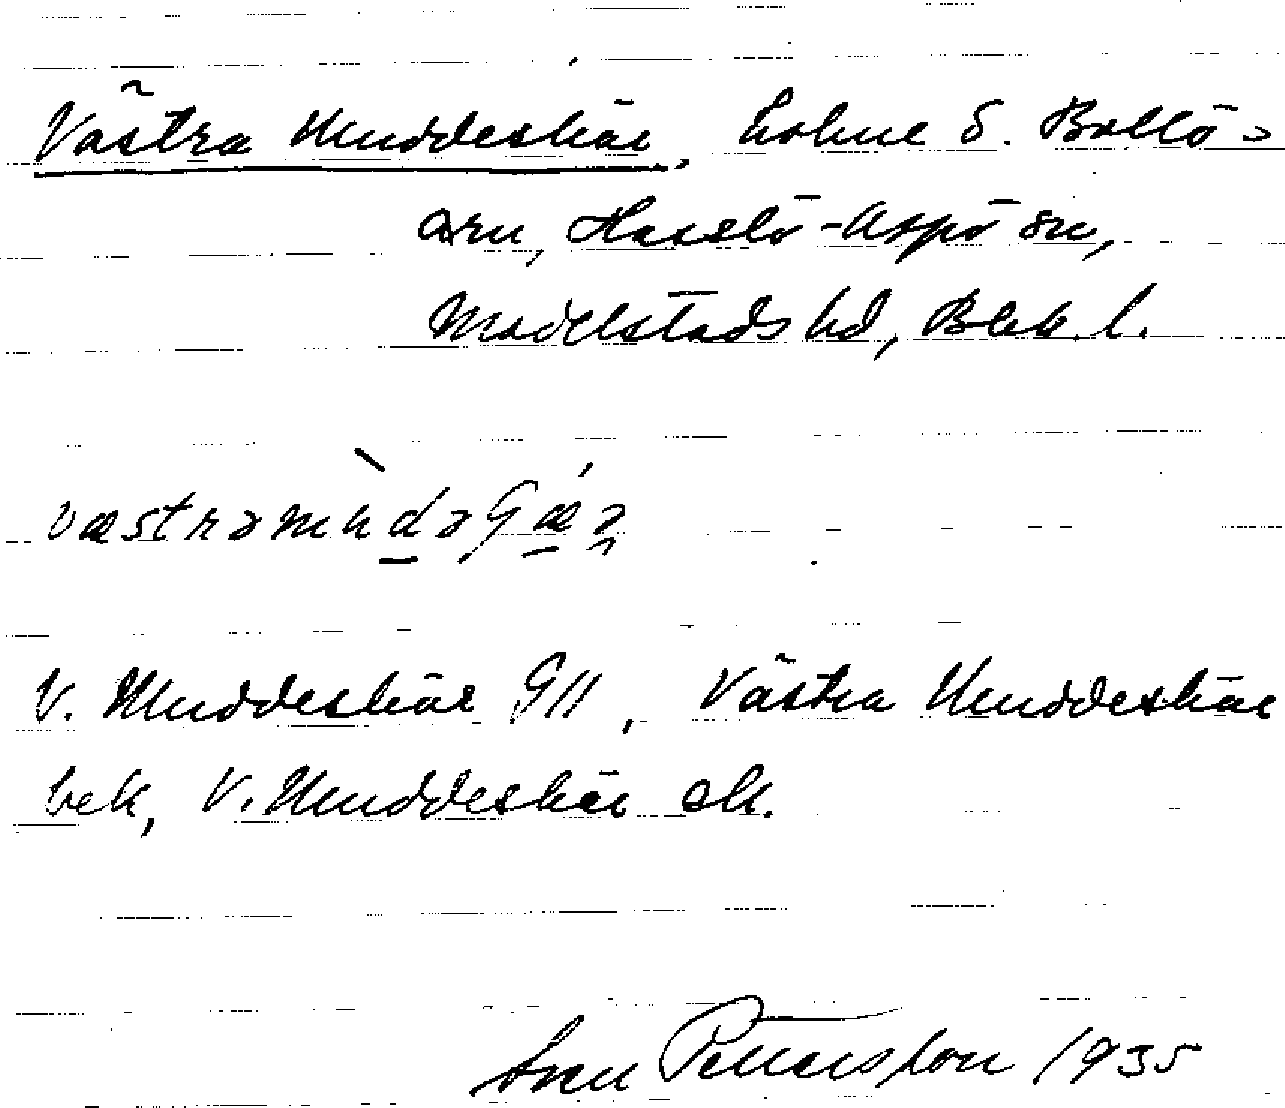 Västra Muddeskär, holme S. Bollö-
arn, Hasslö-Aspö sn,
Medelstads hd, Blek. l.
V. Muddeskär GII, Västra Muddeskär
bek, V. Muddeskär ek.
Sven Pettersson 1935